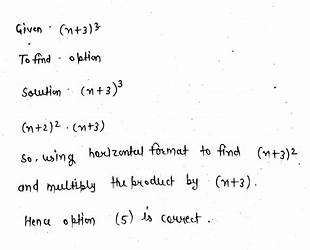 Given · (x+3)³
To find - option
Solution · (x+3)³
(x+2)² · (x+3)
So, using horizontal format to find (x+3)²
and multiply the product by (x+3).
Hence option (5) is correct.